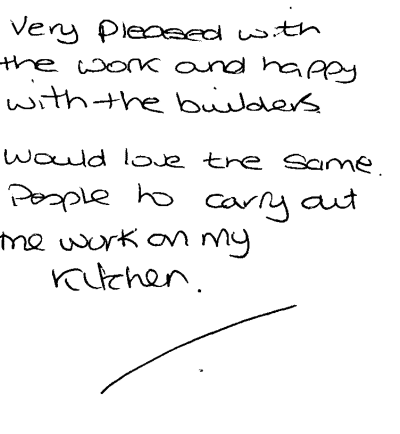 Very pleased with
the work and happy
with the builders
would love the same.
People to carry out
the work on my
kitchen.